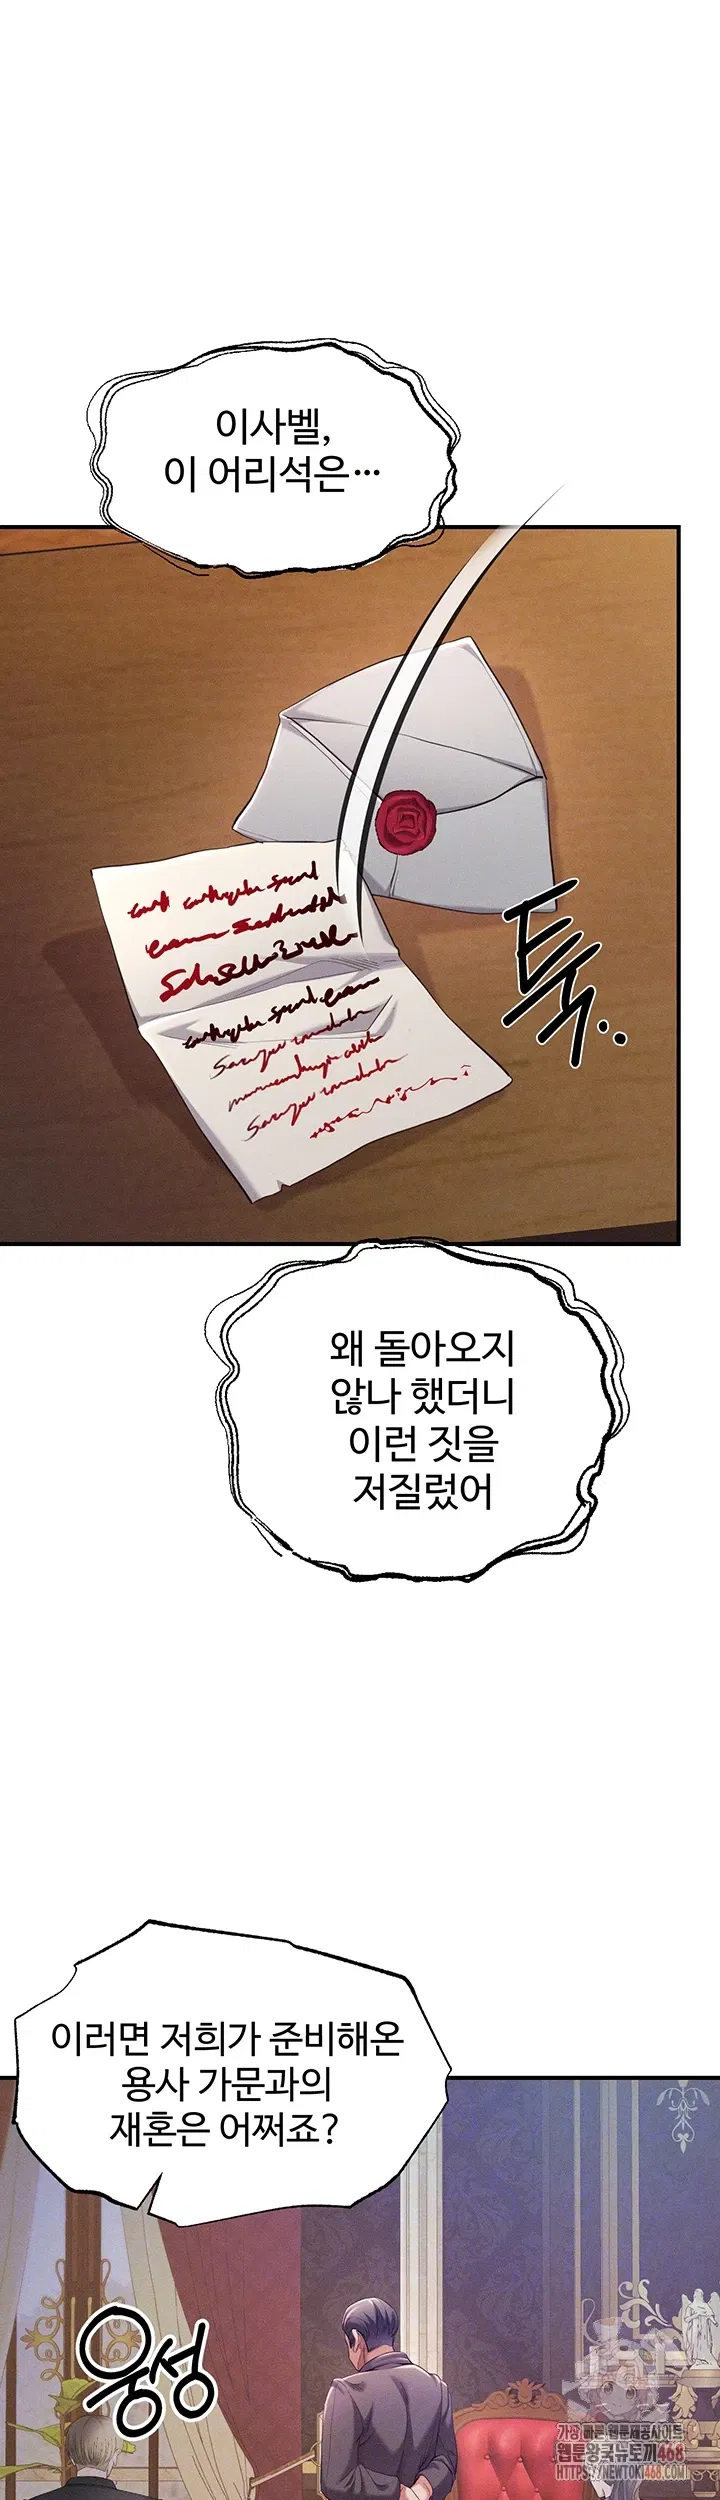 이사벨,
이 어리석은…
툭..
왜 돌아오지
않나 했더니
이런 짓을
저질렀어
이러면 저희가 준비해온
용사 가문과의
재혼은 어쩌죠?
웅성
가장 빠른 웹툰제공사이트
웹툰왕국뉴토끼468
HTTPS://NEWTOKI468.COM